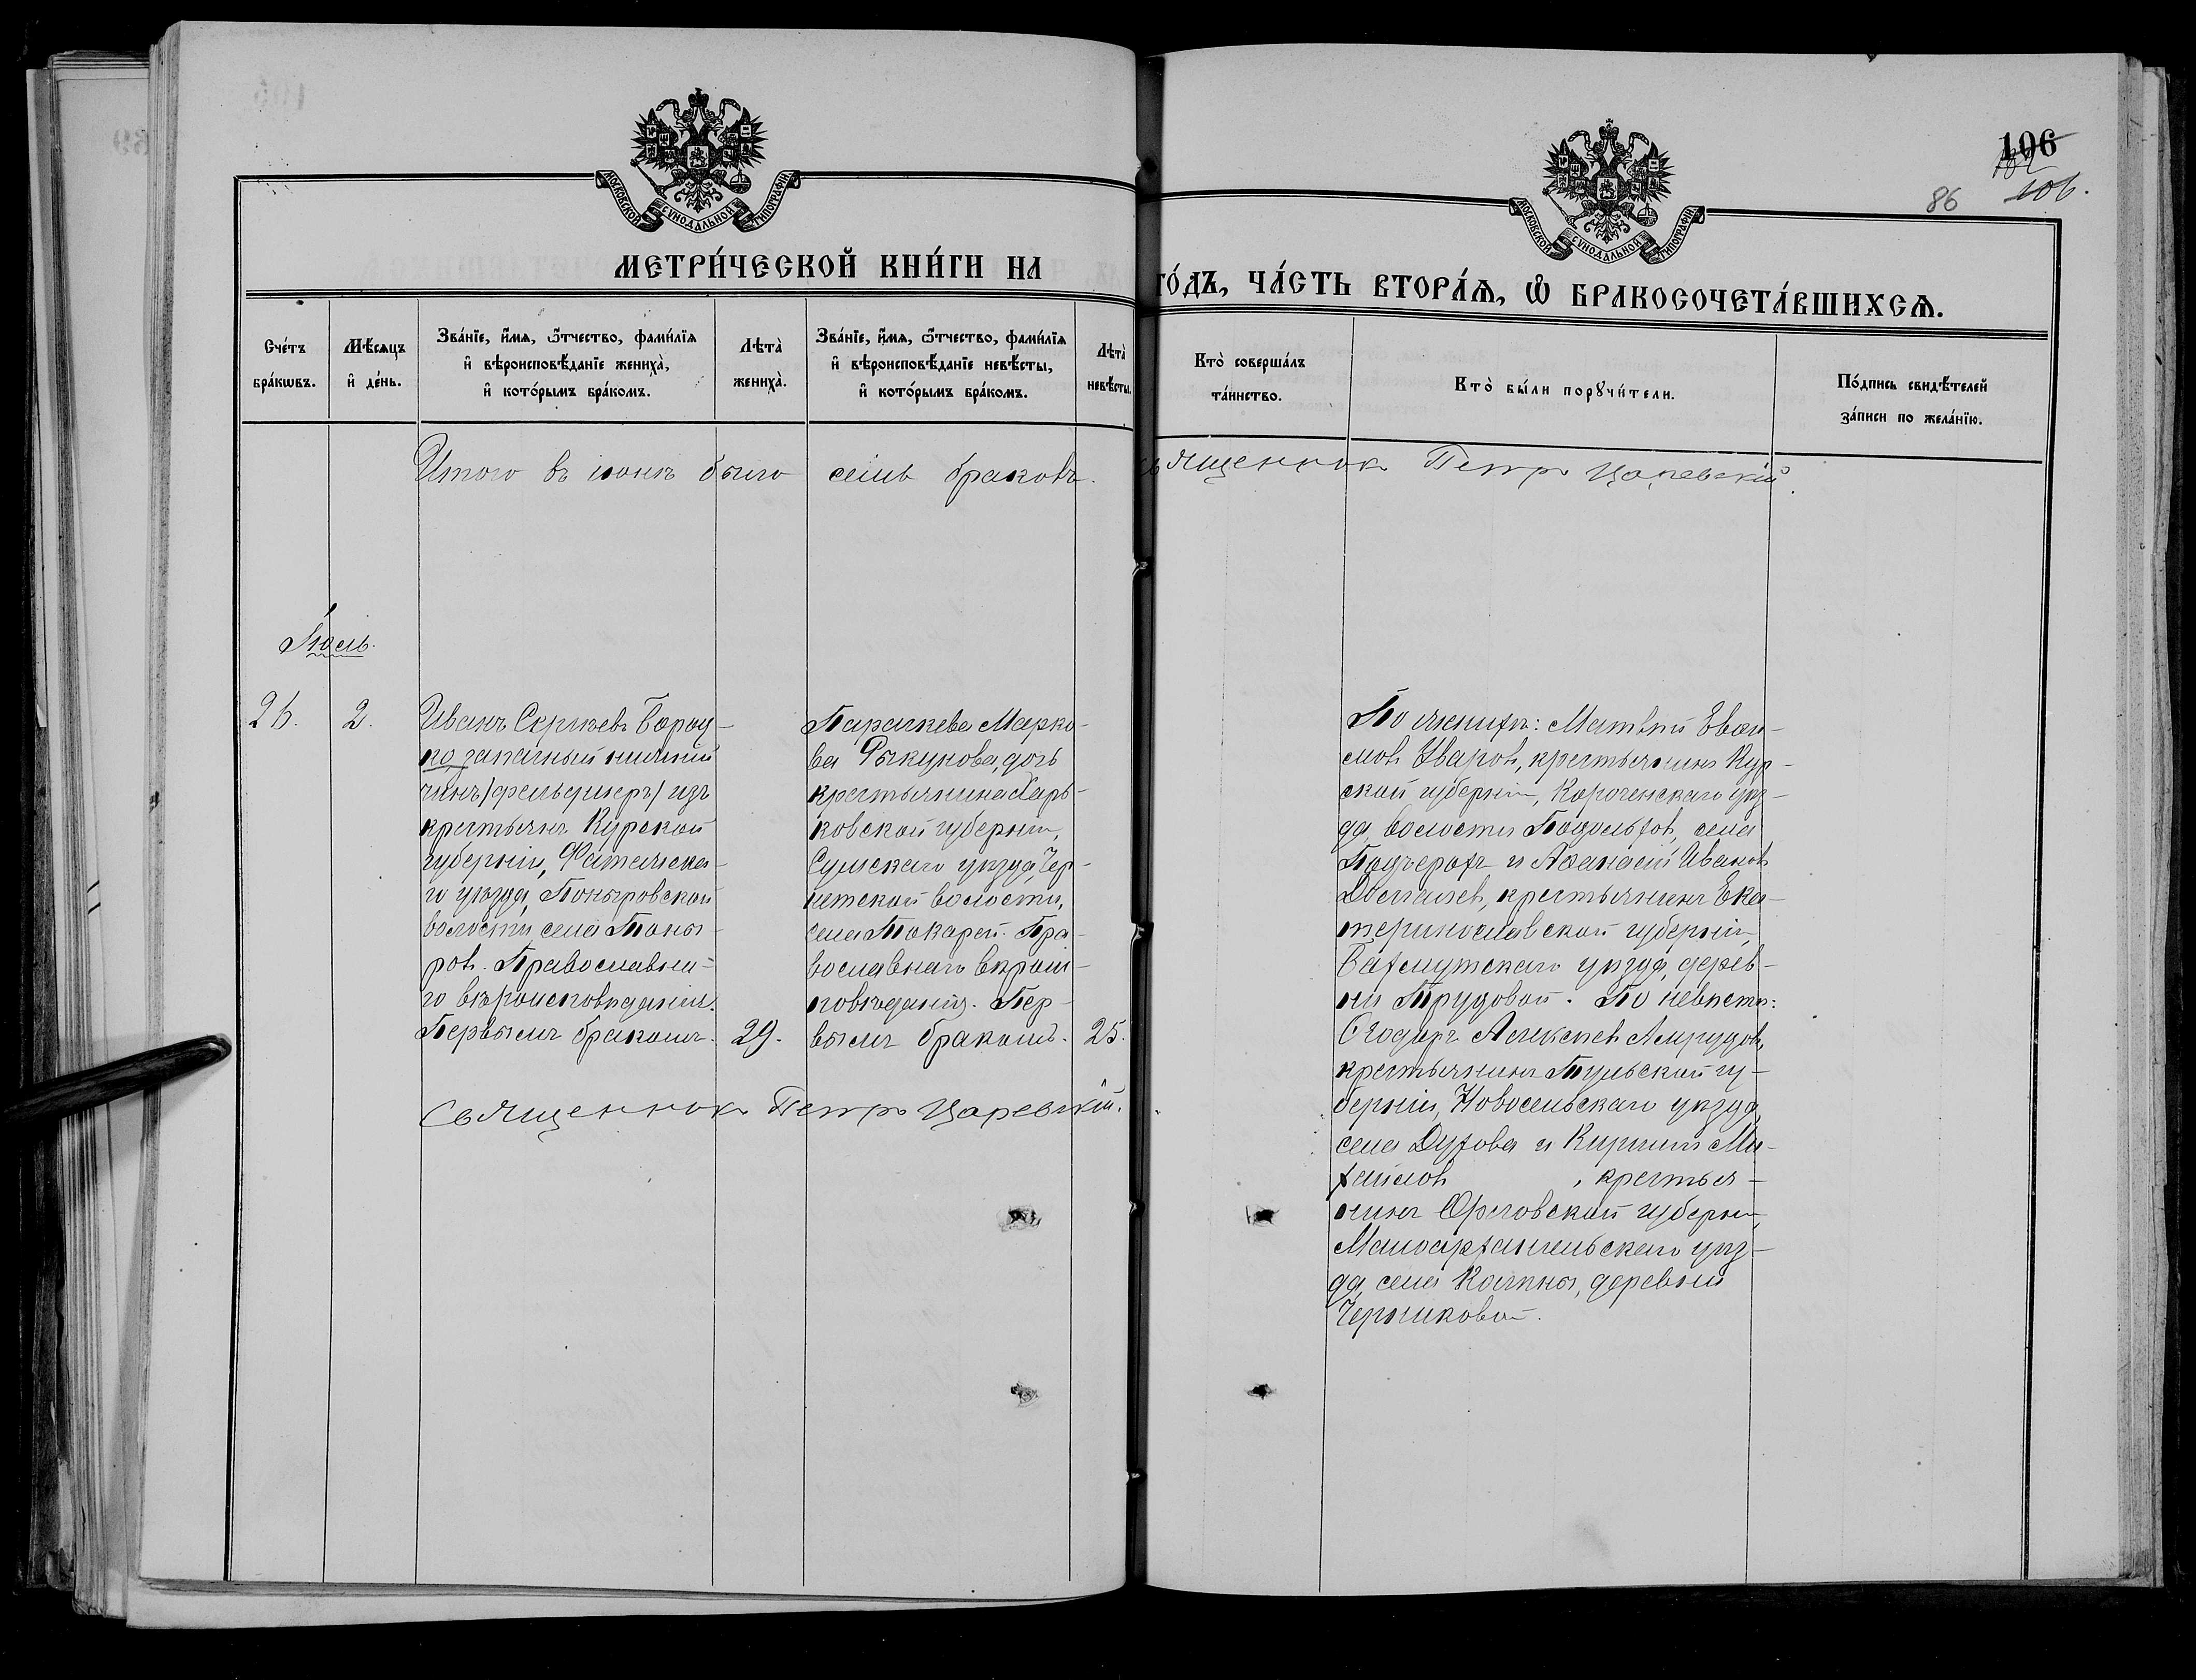 106
102
106.
86
МОСКОВСКОЙ СУНОДАЛЬНОЙ ТИПОГРАФІИ
МОСКОВСКОЙ СУНОДАЛЬНОЙ ТИПОГРАФІИ
МЕТРИ́ЧЕСКОЙ КНИ́ГИ НА ГО́ДЪ, ЧА́СТЬ ВТОРА́Ѧ, Ѽ БРАКОСОЧЕТА́ВШИХСѦ.
Сче́тъ
бра́кωвъ.
Мѣ́сяцъ
и҆ де́нь.
Зва́нїе, и҆́мѧ, ѻ҆́тчество, фами́лїѧ
и҆ вѣроисповѣ́данїе жениха̀,
и҆ кото́рымъ бра́комъ.
Лѣта̀
жениха̀.
Зва́нїе, и҆́мѧ, ѻ҆́тчество, фами́лїѧ
и҆ вѣроисповѣ́данїе невѣ́сты,
и҆ кото́рымъ бра́комъ.
Лѣта̀
невѣ́сты.
Кто̀ соверша́лъ
та́инство.
Кто̀ бы́ли порꙋчи́тели.
По́дпись свидѣ́телей
за́писи по жела́нїю.
Итого въ іюнѣ было семь браковъ. Священникъ Петръ Царевскій.
Іюль.
26.
2.
Иванъ Сергѣевъ Бород-
ко, запасный нижній
чинъ (фельдшеръ) изъ
крестьянъ Курской
губерніи, Фатежска-
го уѣзда, Поныровской
волости, села Поны-
ров. Православна-
го вѣроисповѣданія.
Первымъ бракомъ.
29.
Параскева Марко-
ва Рыкунова, дочь
крестьянина Харь-
ковской губерніи,
Сумскаго уѣзда, Чер-
нетской волости,
села Токарей. Пра-
вославнаго вѣроис-
повѣданія. Пер-
вымъ бракомъ.
25.
Священникъ Петръ Царевскій.
По женихѣ: Матвѣй
Уваровъ, крестьянинъ Кур-
ской губерніи, Короченскаго уѣз-
да, волости села
и Аѳанасій Ивановъ
крестьянинъ Ека-
теринославской губерніи,
Бахмутскаго уѣзда, дерев-
ни Трудовой. По невѣстѣ:
Ѳеодоръ Алексѣевъ
крестьянинъ Тульской гу-
берніи, Новосельскаго уѣзда,
села Духова и Кириллъ Ми-
хайловъ , крестья-
нинъ Орловской губерніи,
Малоархангельскаго уѣз-
да, села Колпны, деревни